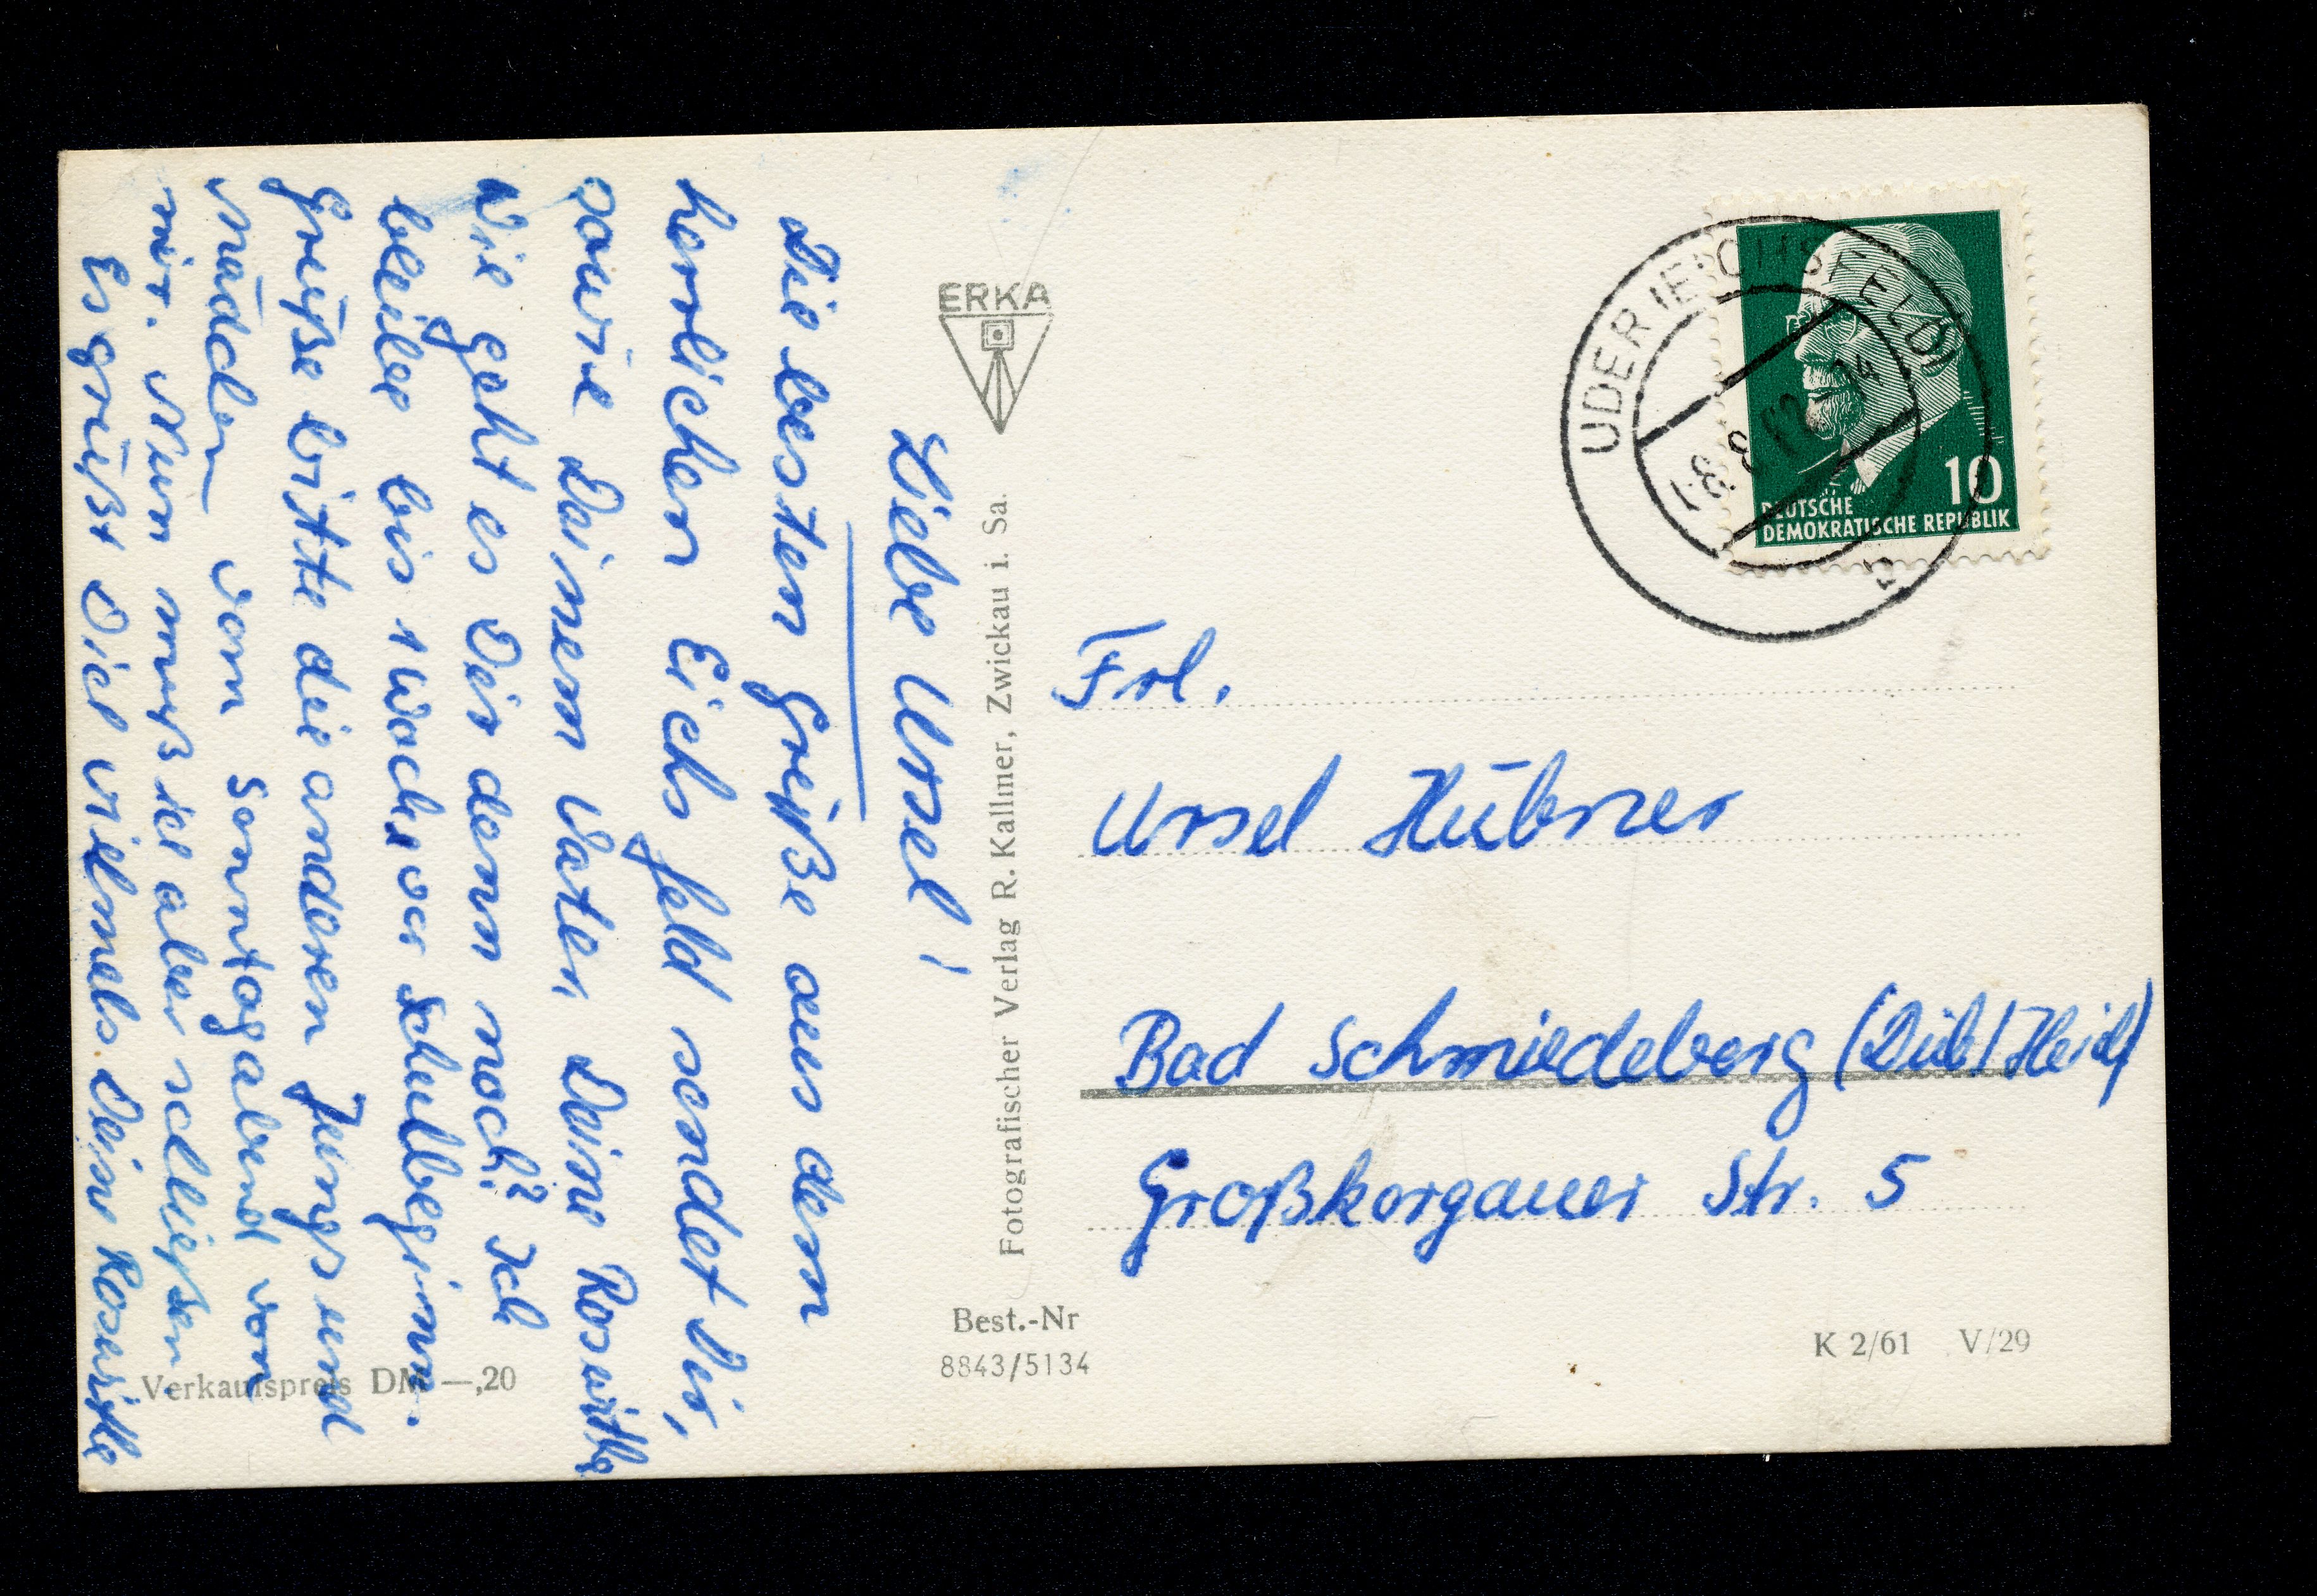 Liebe Ursel!
Die besten Grüße aus dem
herrlichen Eichsfeld sendet Dir,
sowie Deinem Vater, Deine Roswitha
Wie geht es Dir denn noch? Ich
bleibe bis 1 Woche vor Schulbeginn.
Grüße bitte die anderen Jungs und
Mädchen vom Sonntagabend von
mir. Nun muß ich aber schließen
Es grüßt Dich vielmals Deine Roswitha
Verkaufspreis DM —,20
ERKA
Fotografischer Verlag R. Kallmer, Zwickau i. Sa.
Best.-Nr
8843/5134
UDER (EICHSFELD)
DEUTSCHE
DEMOKRATISCHE REPUBLIK
10
Frl.
Ursel Hübner
Bad Schmiedeberg (Düb/Heide)
Großkorgauer Str. 5
K 2/61 V/29